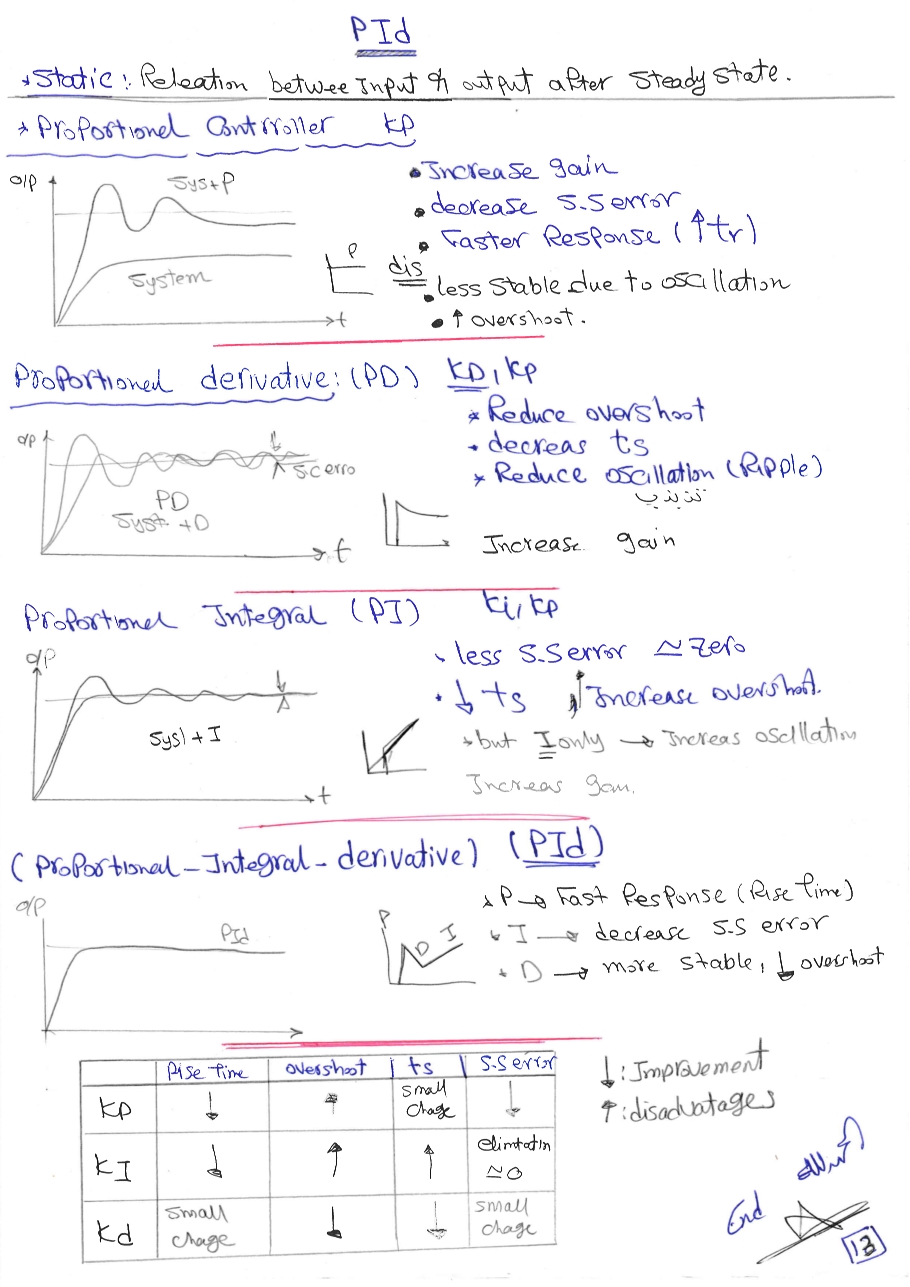 PId
* Static: Releation betwee Input & output after Steady State.
* Proportionel Contrroller KP
O/P
Sys+P
System
t
P
• Increase gain
• decrease S.S error
• Faster Response (↑tr)
dis
• less Stable due to oscillation
• ↑ overshoot.
Proportioned derivative: (PD) KD, KP
O/P
Sc erro
PD
Syst +D
t
* Reduce overshoot
• decreas ts
* Reduce oscillation (Ripple)
تذبذب
Increase gain
Proportionel Integral (PI) Ki, KP
O/P
Sys1 + I
t
• less S.S error ≃ Zero
• ↓ ts Increase overshoot.
* but I only → Increas oscillation
Increas gain.
(Proportional - Integral - derivative) (PId)
O/P
PId
P
D I
* P → Fast Response (Rise time)
* I → decrease S.S error
* D → more stable, ↓ overshoot
Rise time overshoot ts S.S error
KP ↓ ↑ small chage ↓
KI ↓ ↑ ↑ elimtatin ≃0
Kd small chage ↓ ↓ small chage
↓: Improvement
↑: disadvatages
End
13